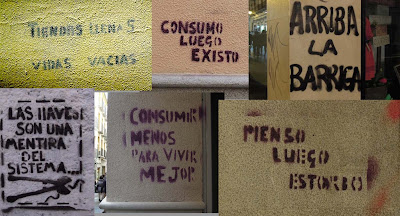 TIENDAS LLENAS
VIDAS VACIAS
CONSUMO
LUEGO
EXISTO
ARRIBA
LA
BARRIGA
LAS LLAVES
SON UNA
MENTIRA
DEL
SISTEMA...
CONSUMIR
MENOS
PARA VIVIR
MEJOR
PIENSO
LUEGO
ESTORBO